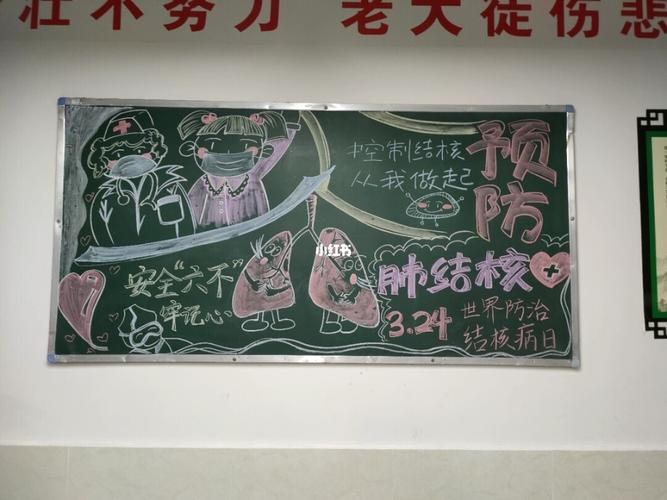 壮不努力 老大徒伤悲
控制结核
从我做起
预防
肺结核
3.24
世界防治
结核病日
安全“六不”
牢记心
小红书